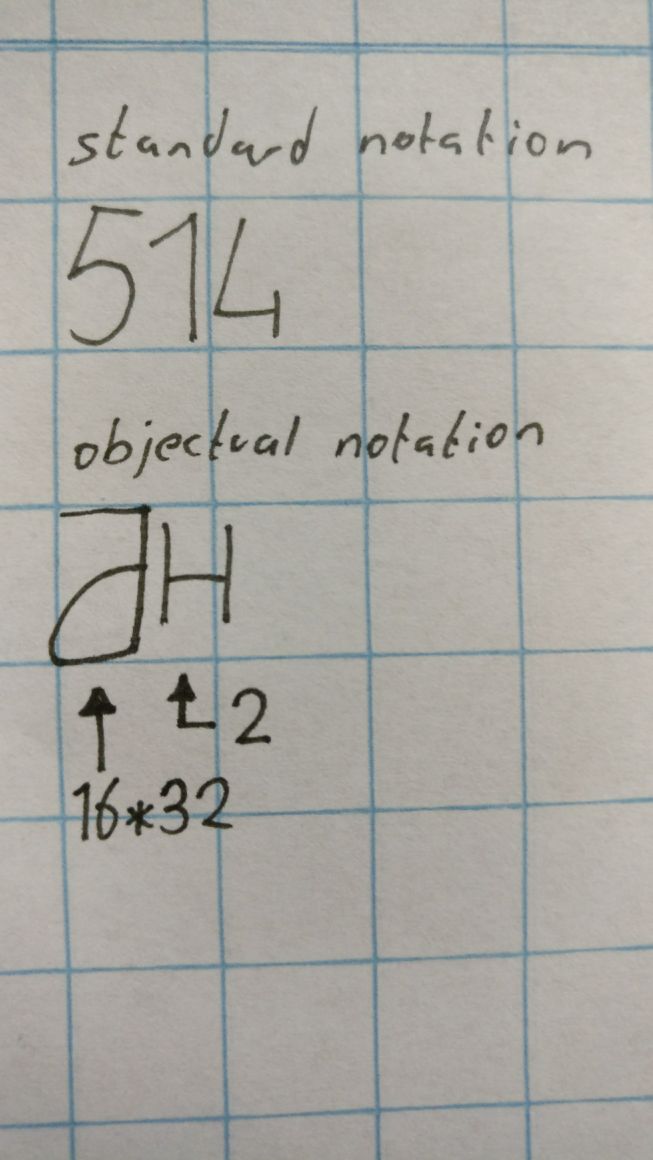 standard notation
514
objectual notation
H
2
16*32